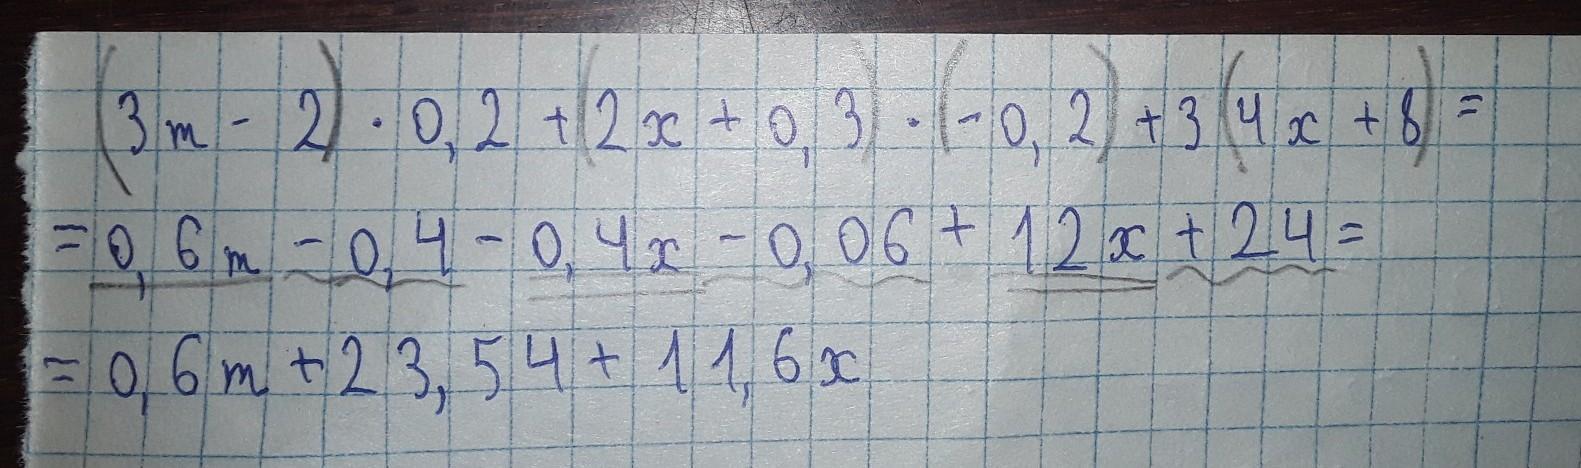 (3m - 2) · 0,2 + (2x + 0,3) · (-0,2) + 3(4x + 8) =
= 0,6m - 0,4 - 0,4x - 0,06 + 12x + 24 =
= 0,6m + 23,54 + 11,6x